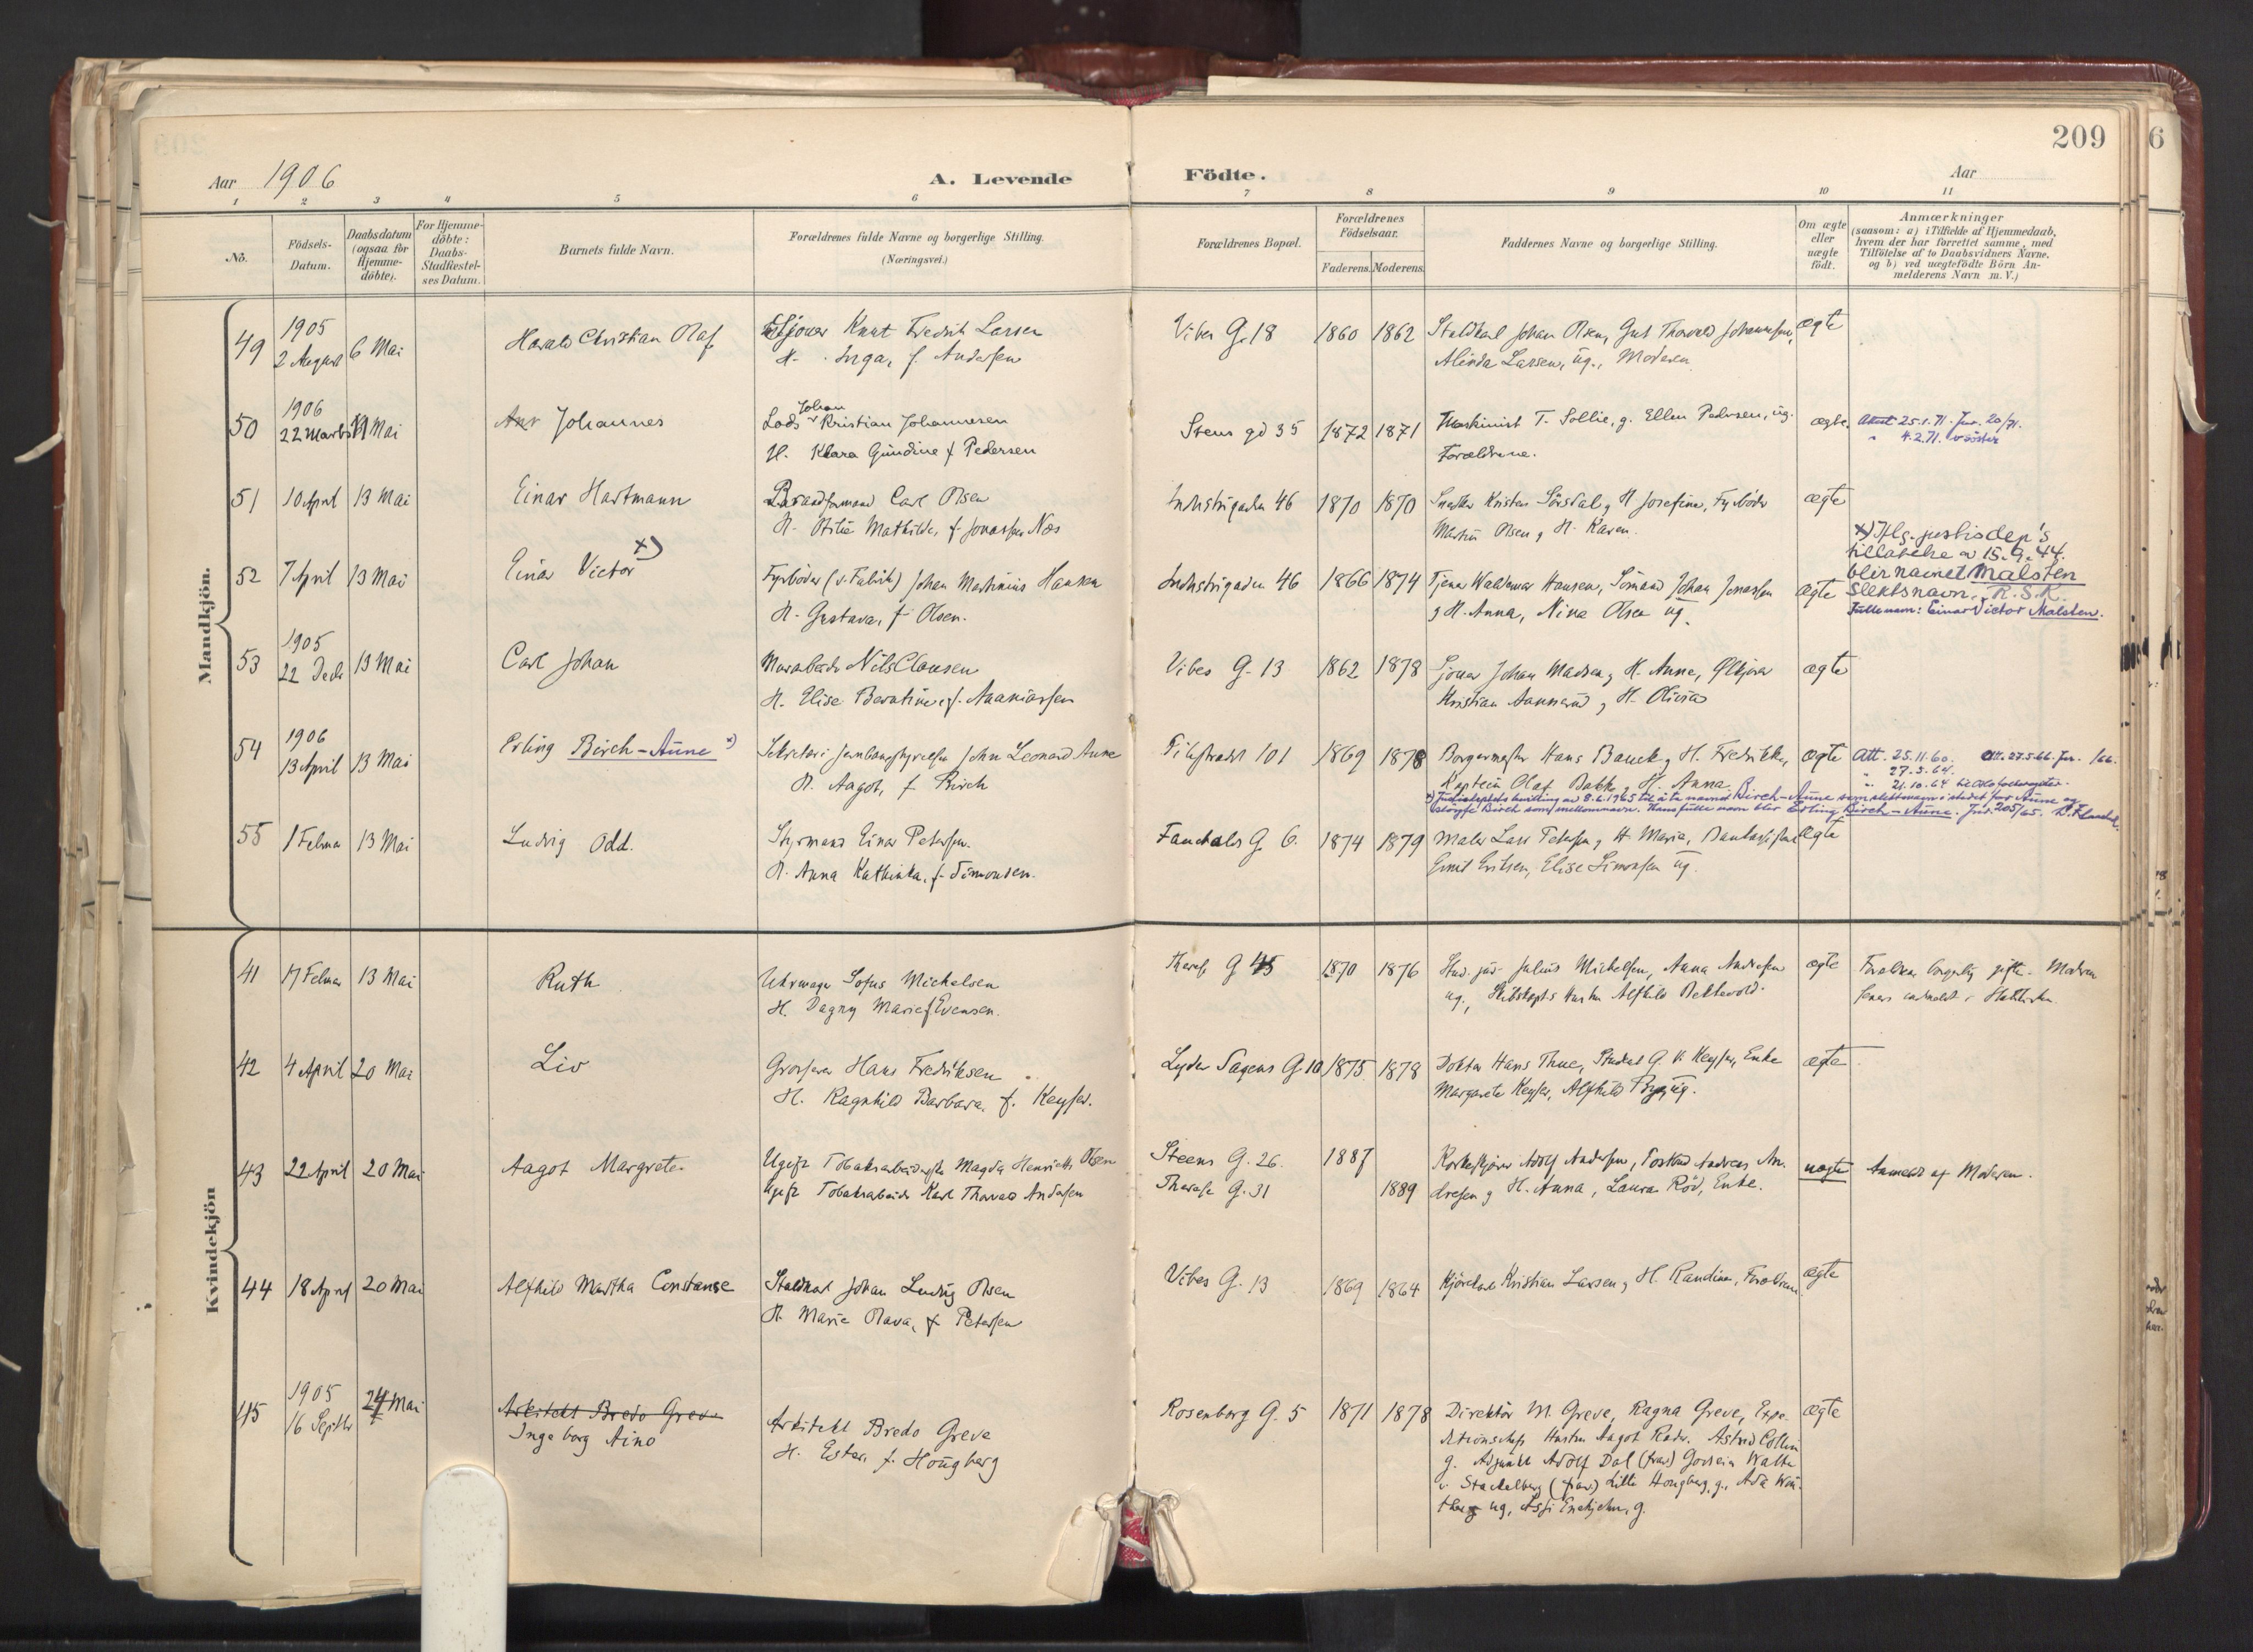 209
6
Aar 1906
A. Levende Födte.
Aar
1 2 3 4 5 6 7 8 9 10 11
No.
Födsels-
Datum.
Daabsdatum
(ogsaa for
Hjemme-
döbte).
For Hjemme-
döbte:
Daabs-
Stadfæstel-
ses Datum.
Barnets fulde Navn.
Forældrenes fulde Navne og borgerlige Stilling.
(Næringsvei.)
Forældrenes Bopæl.
Forældrenes
Födselsaar.
Faderens. Moderens.
Faddernes Navne og borgerlige Stilling.
Om ægte
eller
uægte
födt.
Anmærkninger
(saasom: a) i Tilfælde af Hjemmedaab,
hvem der har forrettet samme, med
Tilföielse af to Daabsvidners Navne,
og b) ved uægtefödte Börn An-
melderens Navn m. V.)
Mandkjön.
49 1905
2 August 6 Mai Harald Christian Olaf
Knut Fredrik Larsen
H. Inga, f. Andersen
Vibes G. 18 1860 1862
Staldkarl Johan Olsen, Gut Thorvald Johannesen,
Alinda Larsen, ug., Moderen.
ægte
50 1906
22 Marts Mai Johannes
Lods Johan Kristian Johannesen
H. Klara Gundine f. Pedersen
Stens gd 35 1872 1871
Maskinist T. Sollie, g. Ellen Pedersen, ug.
Forældrene.
ægte.
Attest 25.1.71. Jnr. 20/71.
" 4.2.71.
51 10 April 13 Mai Einar Hartmann
Carl Olsen
H. Otilie Mathilde, f. Jonassen Næs
Industrigaden 46 1870 1870
Snekker Kristen Sörsdal, H. Josefine, Fyrböder
Martin Olsen, H. Karen.
ægte
52 7 April 13 Mai Einar Victor x)
Fyrböder (v. Fabrik) Johan Martinius Hansen
H. Gustava, f. Olsen.
Industrigaden 46 1866 1874
Tjener Waldemar Hansen, Sömand Johan Jonassen
g H. Anna, Nina Olsen ug.
ægte
x) Iflg. justisdep's
tillatelse av 15.9.44.
blir navnet Malsten
slektsnavn. R.S.K.
Fulle navn: Einar Victor Malsten.
53 1905
22 Decbr 13 Mai Carl Johan
Murarbeider Nils Clausen
H. Elise Berntine, f. Ananiassen
Vibes G. 13 1862 1878
Johan Madsen, H. Anne, Ölkjörer
Kristian Aamerud, H. Olivia
ægte
54 1906
13 April 13 Mai Erling Birch-Aune x)
Sekretær i Jernbanestyrelsen John Leonard Aune
H. Aagot, f. Birch
Pilestrædet 101 1869 1878
Borgermester Hans Bauck, H. Fredrikke,
Kaptein Olaf Bakke, H. Anna.
ægte
Att. 25.11.60. Att. 27.5.66. Jnr. /66.
" 27.3.64.
" 21.10.64 til Oslo folkeregister.
x) Justisdeptets bevilling av 8.6.1965 til å ta navnet Birch-Aune som slektsnavn i stedet for Aune og
sløyfe Birch som mellomnavn. Hans fulle navn blir Erling Birch-Aune. Jnr. 205/65.
55 1 Februar 13 Mai Ludvig Odd.
Styrmand Einar Petersen.
H. Anna Kathinka, f. Simonsen.
Fauchalds G. 6. 1874 1879
Maler Lars Petersen, H. Marie,
Emil Eriksen, Elise Simonsen ug.
ægte
Kvindekjön
41 17 Februar 13 Mai Ruth
Uhrmager Sofus Michelsen
H. Dagny Marie f. Evensen.
Therese G 45 1870 1876
Stud. jur. Julius Michelsen, Anna Andresen
ug., Hustru Alfhild
ægte
Forældrene borgerlig gifte. Moderen
42 4 April 20 Mai Liv
Grosserer Hans Fredriksen
H. Ragnhild Barbara, f. Keyser.
Lyder Sagens G. 10 1875 1878
Doktor Hans Thue, Student G. V. Keyser, Enke
Margarete Keyser, Alfhild ug.
ægte
43 22 April 20 Mai Aagot Margrete.
Ugift Tobaksarbeiderske Magda Henriette Olsen
Ugift Tobaksarbeider Karl Thorvald Andersen
Steens G. 26.
Therese G. 31
1887 1889
Adolf Andersen, Postbud Andreas An-
dresen g H. Anna, Laura Röd, Enke.
uægte
Anmeldt af Moderen.
44 18 April 20 Mai Alfhild Martha Constanse
Staldkarl Johan Ludvig Olsen
H. Marie Olava, f. Petersen
Vibes G. 13 1869 1864
Kjörekarl Kristian Larsen, H. Randine, Forældrene.
ægte
45 1905
16 Septbr 24 Mai Arkitekt Bredo Greve
Ingeborg Aino
Arkitekt Bredo Greve
H. Ester, f. Hougberg
Rosenborg G. 5 1871 1878
Direktör M. Greve, Ragna Greve, Expe-
ditionschefs Hustru Aagot Astrid Collin
g. Adjunkt Adolf Dal (frav.) Walter
v. Stackelberg (frav.) Lilli Hougberg, g., Ada
ug, g.
ægte